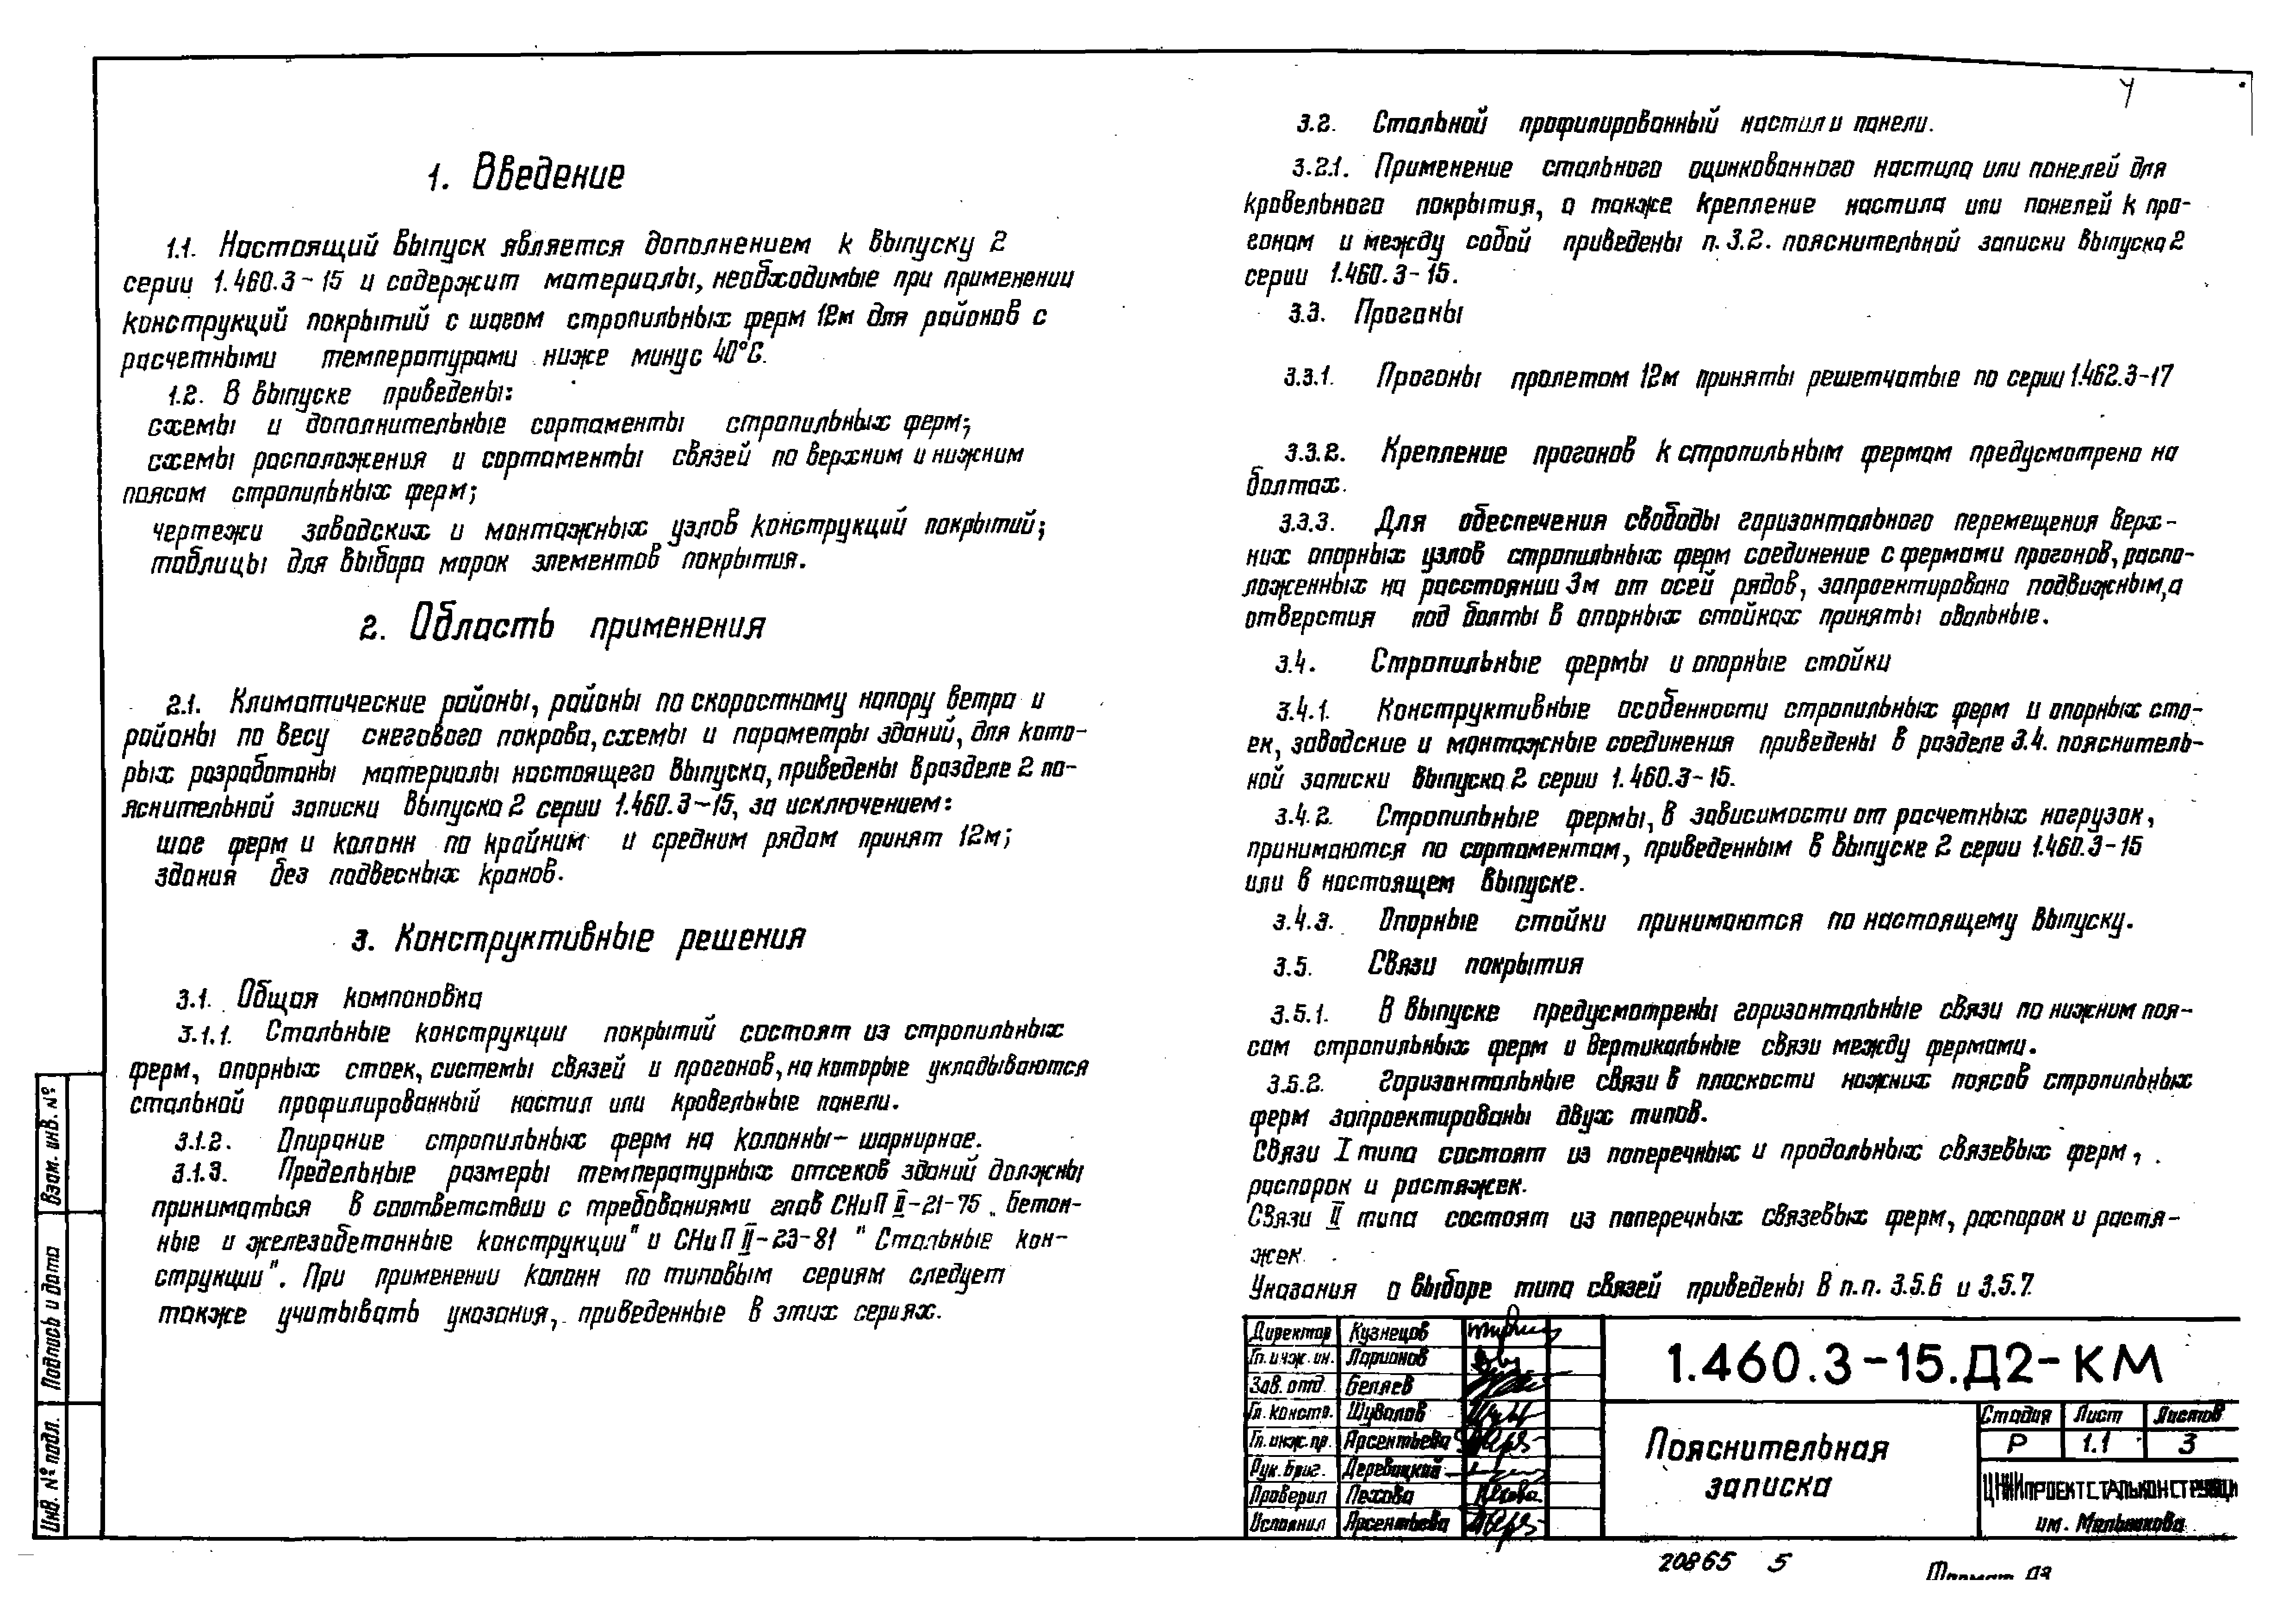 4
1. Введение
1.1. Настоящий выпуск является дополнением к выпуску 2
серии 1.460.3-15 и содержит материалы, необходимые при применении
конструкций покрытий с шагом стропильных ферм 12м для районов с
расчетными температурами ниже минус 40°С.
1.2. В выпуске приведены:
схемы и дополнительные сортаменты стропильных ферм;
схемы расположения и сортаменты связей по верхним и нижним
поясам стропильных ферм;
чертежи заводских и монтажных узлов конструкций покрытий;
таблицы для выбора марок элементов покрытия.
2. Область применения
2.1. Климатические районы, районы по скоростному напору ветра и
районы по весу снегового покрова, схемы и параметры зданий, для кото-
рых разработаны материалы настоящего выпуска, приведены в разделе 2 по-
яснительной записки выпуска 2 серии 1.460.3-15, за исключением:
шаг ферм и колонн по крайним и средним рядам принят 12м;
здания без подвесных кранов.
3. Конструктивные решения
3.1. Общая компоновка
3.1.1. Стальные конструкции покрытий состоят из стропильных
ферм, опорных стоек, системы связей и прогонов, на которые укладываются
стальной профилированный настил или кровельные панели.
3.1.2. Опирание стропильных ферм на колонны - шарнирное.
3.1.3. Предельные размеры температурных отсеков зданий должны
приниматься в соответствии с требованиями глав СНиП II-21-75 „Бетон-
ные и железобетонные конструкции" и СНиП II-23-81 "Стальные кон-
струкции". При применении колонн по типовым сериям следует
также учитывать указания, приведенные в этих сериях.
3.2. Стальной профилированный настил и панели.
3.2.1. Применение стального оцинкованного настила или панелей для
кровельного покрытия, а также крепление настила или панелей к про-
гонам и между собой приведены п. 3.2. пояснительной записки выпуска 2
серии 1.460.3-15.
3.3. Прогоны
3.3.1. Прогоны пролетом 12м приняты решетчатые по серии 1.462.3-17
3.3.2. Крепление прогонов к стропильным фермам предусмотрено на
болтах.
3.3.3. Для обеспечения свободы горизонтального перемещения верх-
них опорных узлов стропильных ферм соединение с фермами прогонов, распо-
ложенных на расстоянии 3м от осей рядов, запроектировано подвижным, а
отверстия под болты в опорных стойках приняты овальные.
3.4. Стропильные фермы и опорные стойки
3.4.1. Конструктивные особенности стропильных ферм и опорных сто-
ек, заводские и монтажные соединения приведены в разделе 3.4. пояснитель-
ной записки выпуска 2 серии 1.460.3-15.
3.4.2. Стропильные фермы, в зависимости от расчетных нагрузок,
принимаются по сортаментам, приведенным в выпуске 2 серии 1.460.3-15
или в настоящем выпуске.
3.4.3. Опорные стойки принимаются по настоящему выпуску.
3.5. Связи покрытия
3.5.1. В выпуске предусмотрены горизонтальные связи по нижним поя-
сам стропильных ферм и вертикальные связи между фермами.
3.5.2. Горизонтальные связи в плоскости нижних поясов стропильных
ферм запроектированы двух типов.
Связи I типа состоят из поперечных и продольных связевых ферм,
распорок и растяжек.
Связи II типа состоят из поперечных связевых ферм, распорок и растя-
жек.
Указания о выборе типа связей приведены в п.п. 3.5.6 и 3.5.7.
Директор Кузнецов
Гл. инж. ин. Ларионов
Зав. отд. Беляев
Гл. констр. Шувалов
Гл. инж. пр. Арсентьева
Рук. бриг. Деревицкий
Проверил Пехова
Исполнил Арсентьева
1.460.3-15.Д2-КМ
Пояснительная
записка
Стадия Лист Листов
Р 1.1 3
ЦНИИПРОЕКТСТАЛЬКОНСТРУКЦИЯ
им. Мельникова
Взам. инв. №
Подпись и дата
Инв. № подл.
20865 5
Формат А3